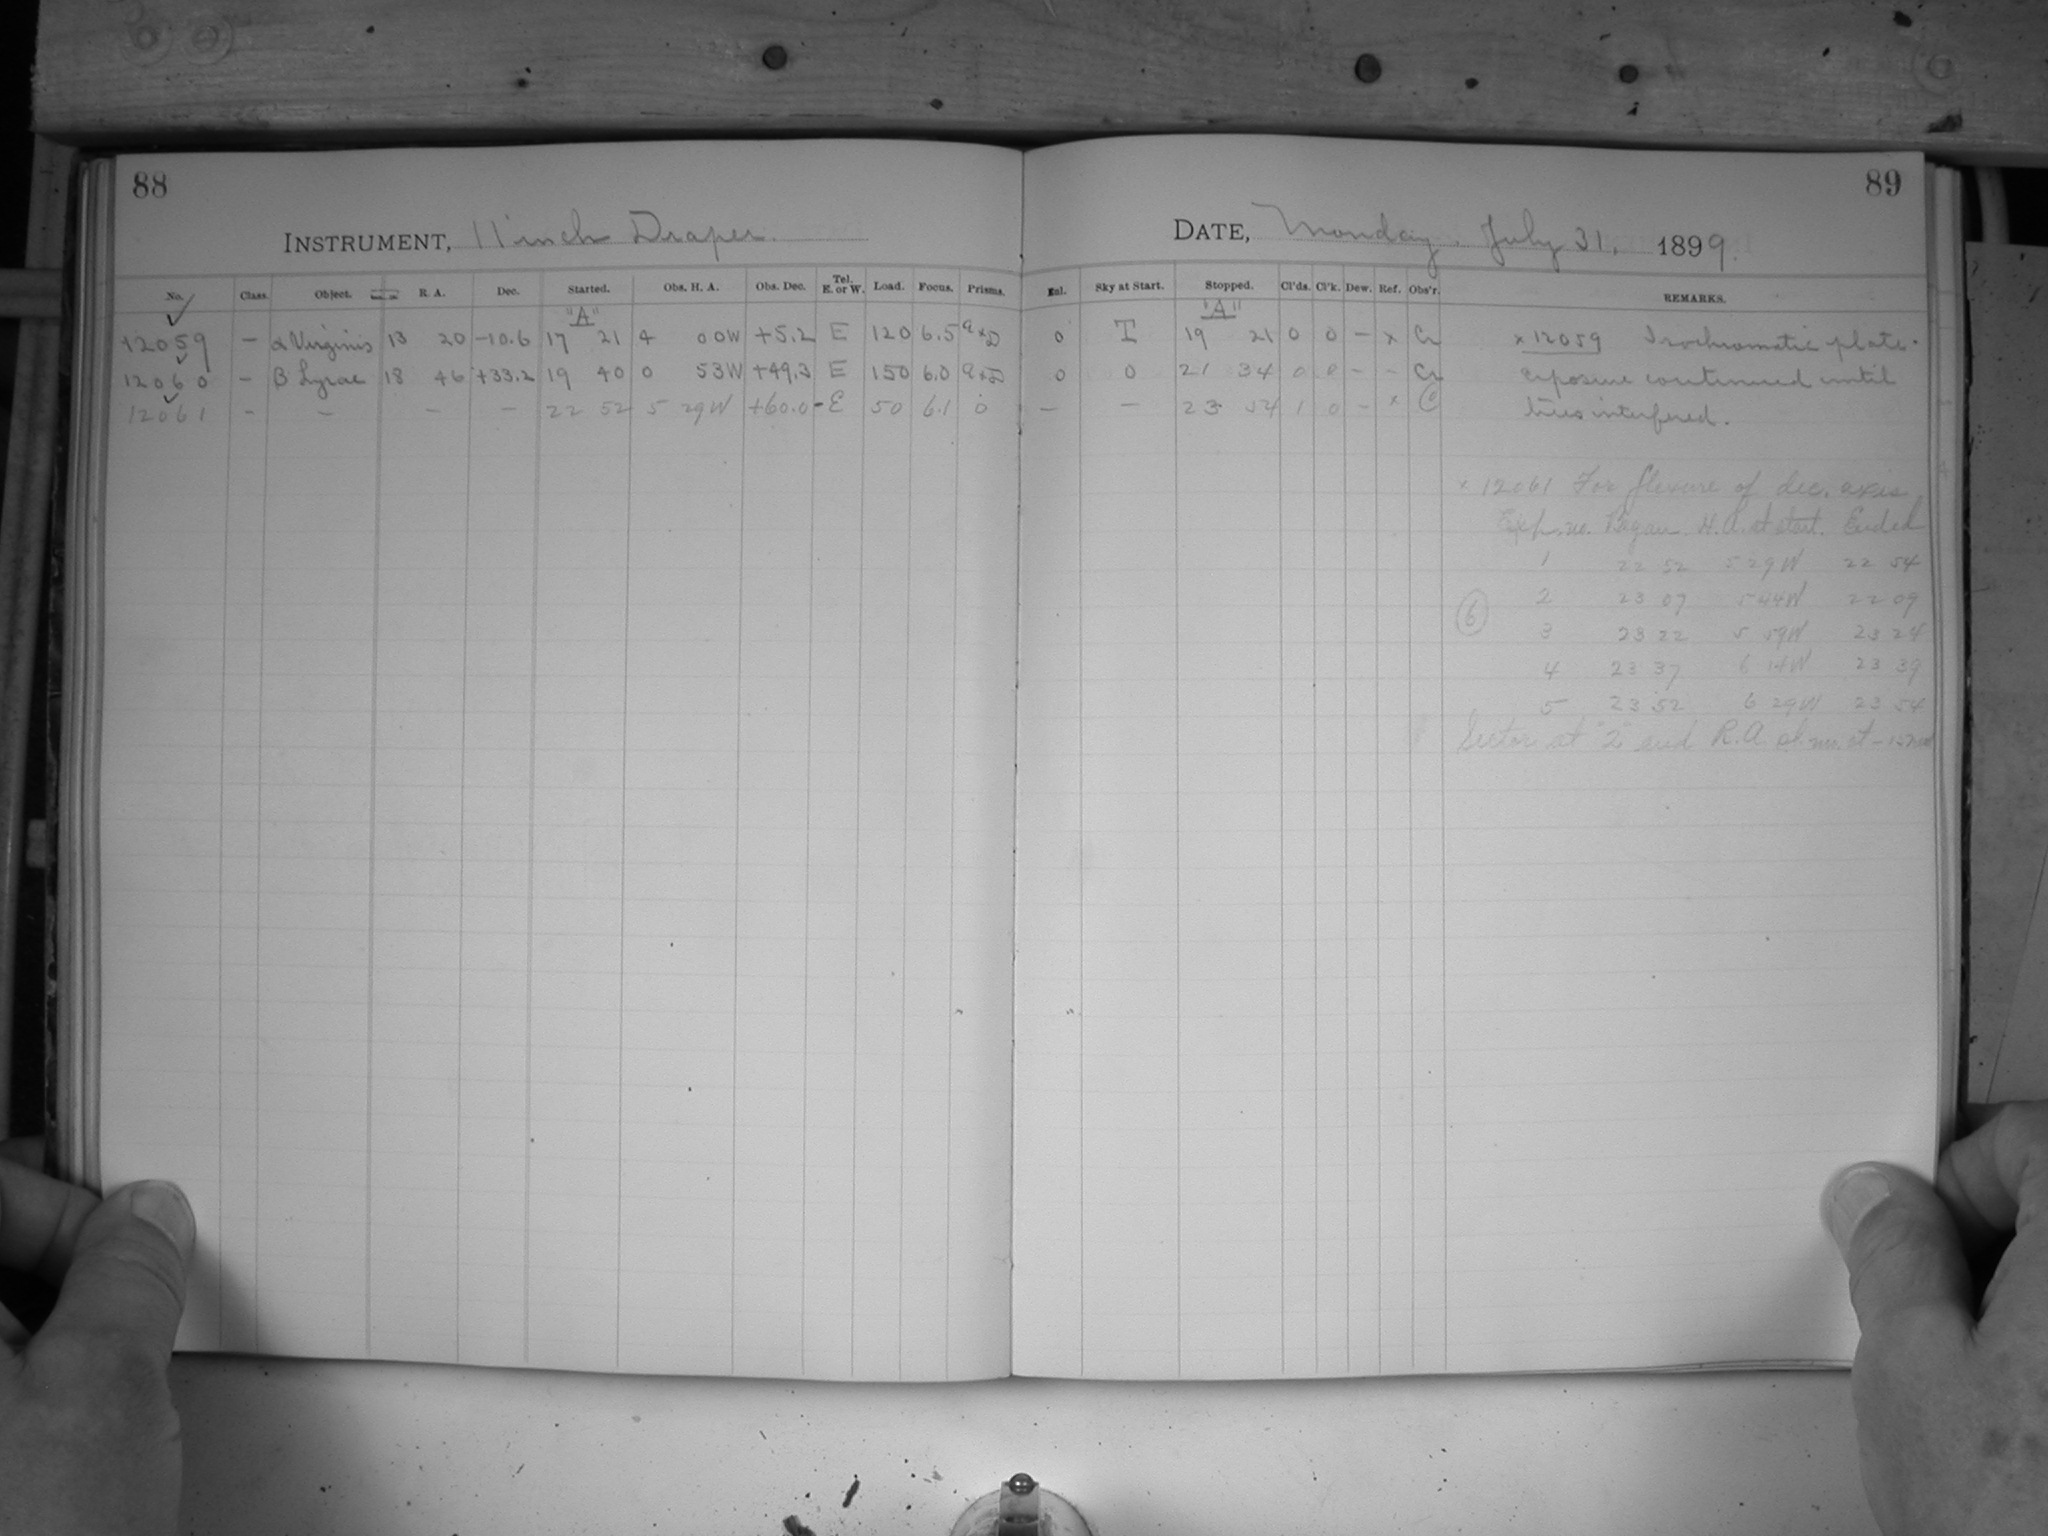 88
INSTRUMENT, 11 inch Draper.
No. Class. Object. R. A. Dec. Started. Obs. H. A. Obs. Dec. Tel. E. or W. Load. Focus. Prisms.
"A"
12059 — α Virginis 13 20 -10.6 17 21 4 00W +5.2 E 120 6.5
12060 - β Lyrae 18 46 +33.2 19 40 0 53W +49.3 E 150 6.0
12061 - - - - 22 52 5 29W +60.0 E 50 6.1 0
89
DATE, Monday, July 31, 1899.
Enl. Sky at Start. Stopped. Cl'ds. Cl'k. Dew. Ref. Obs'r. REMARKS.
"A"
0 I 19 21 0 0 - x Cr x 12059 Isochromatic plate.
0 0 21 34 0 0 - - Cr Exposure continued until
— — 23 54 1 0 - x C interfered.
x 12061 For flexure of dec. axis
Exp. no. Began H.A. at start. Ended
1 22 52 5 29W 22 54
2 23 07 5 44W 22 09
6
3 23 22 5 59W 23 24
4 23 37 6 14W 23 39
5 23 52 6 29W 23 54
Sector at "2" and R.A.